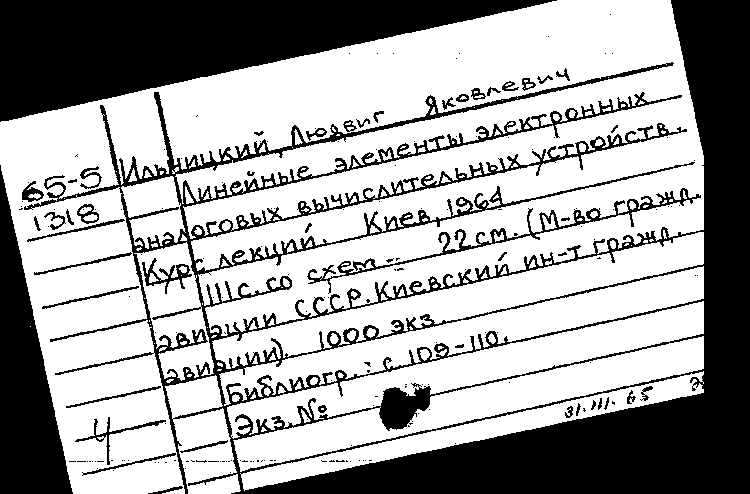 65-5
1318
Ильницкий, Людвиг Яковлевич
Линейные элементы электронных
аналоговых вычислительных устройств.
Курс лекций. Киев, 1964
111 с. со схем. 22 см. (М-во гражд.
авиации СССР. Киевский ин-т гражд.
авиации). 1000 экз.
Библиогр.: с. 109-110.
Экз. №
31.III.65
4